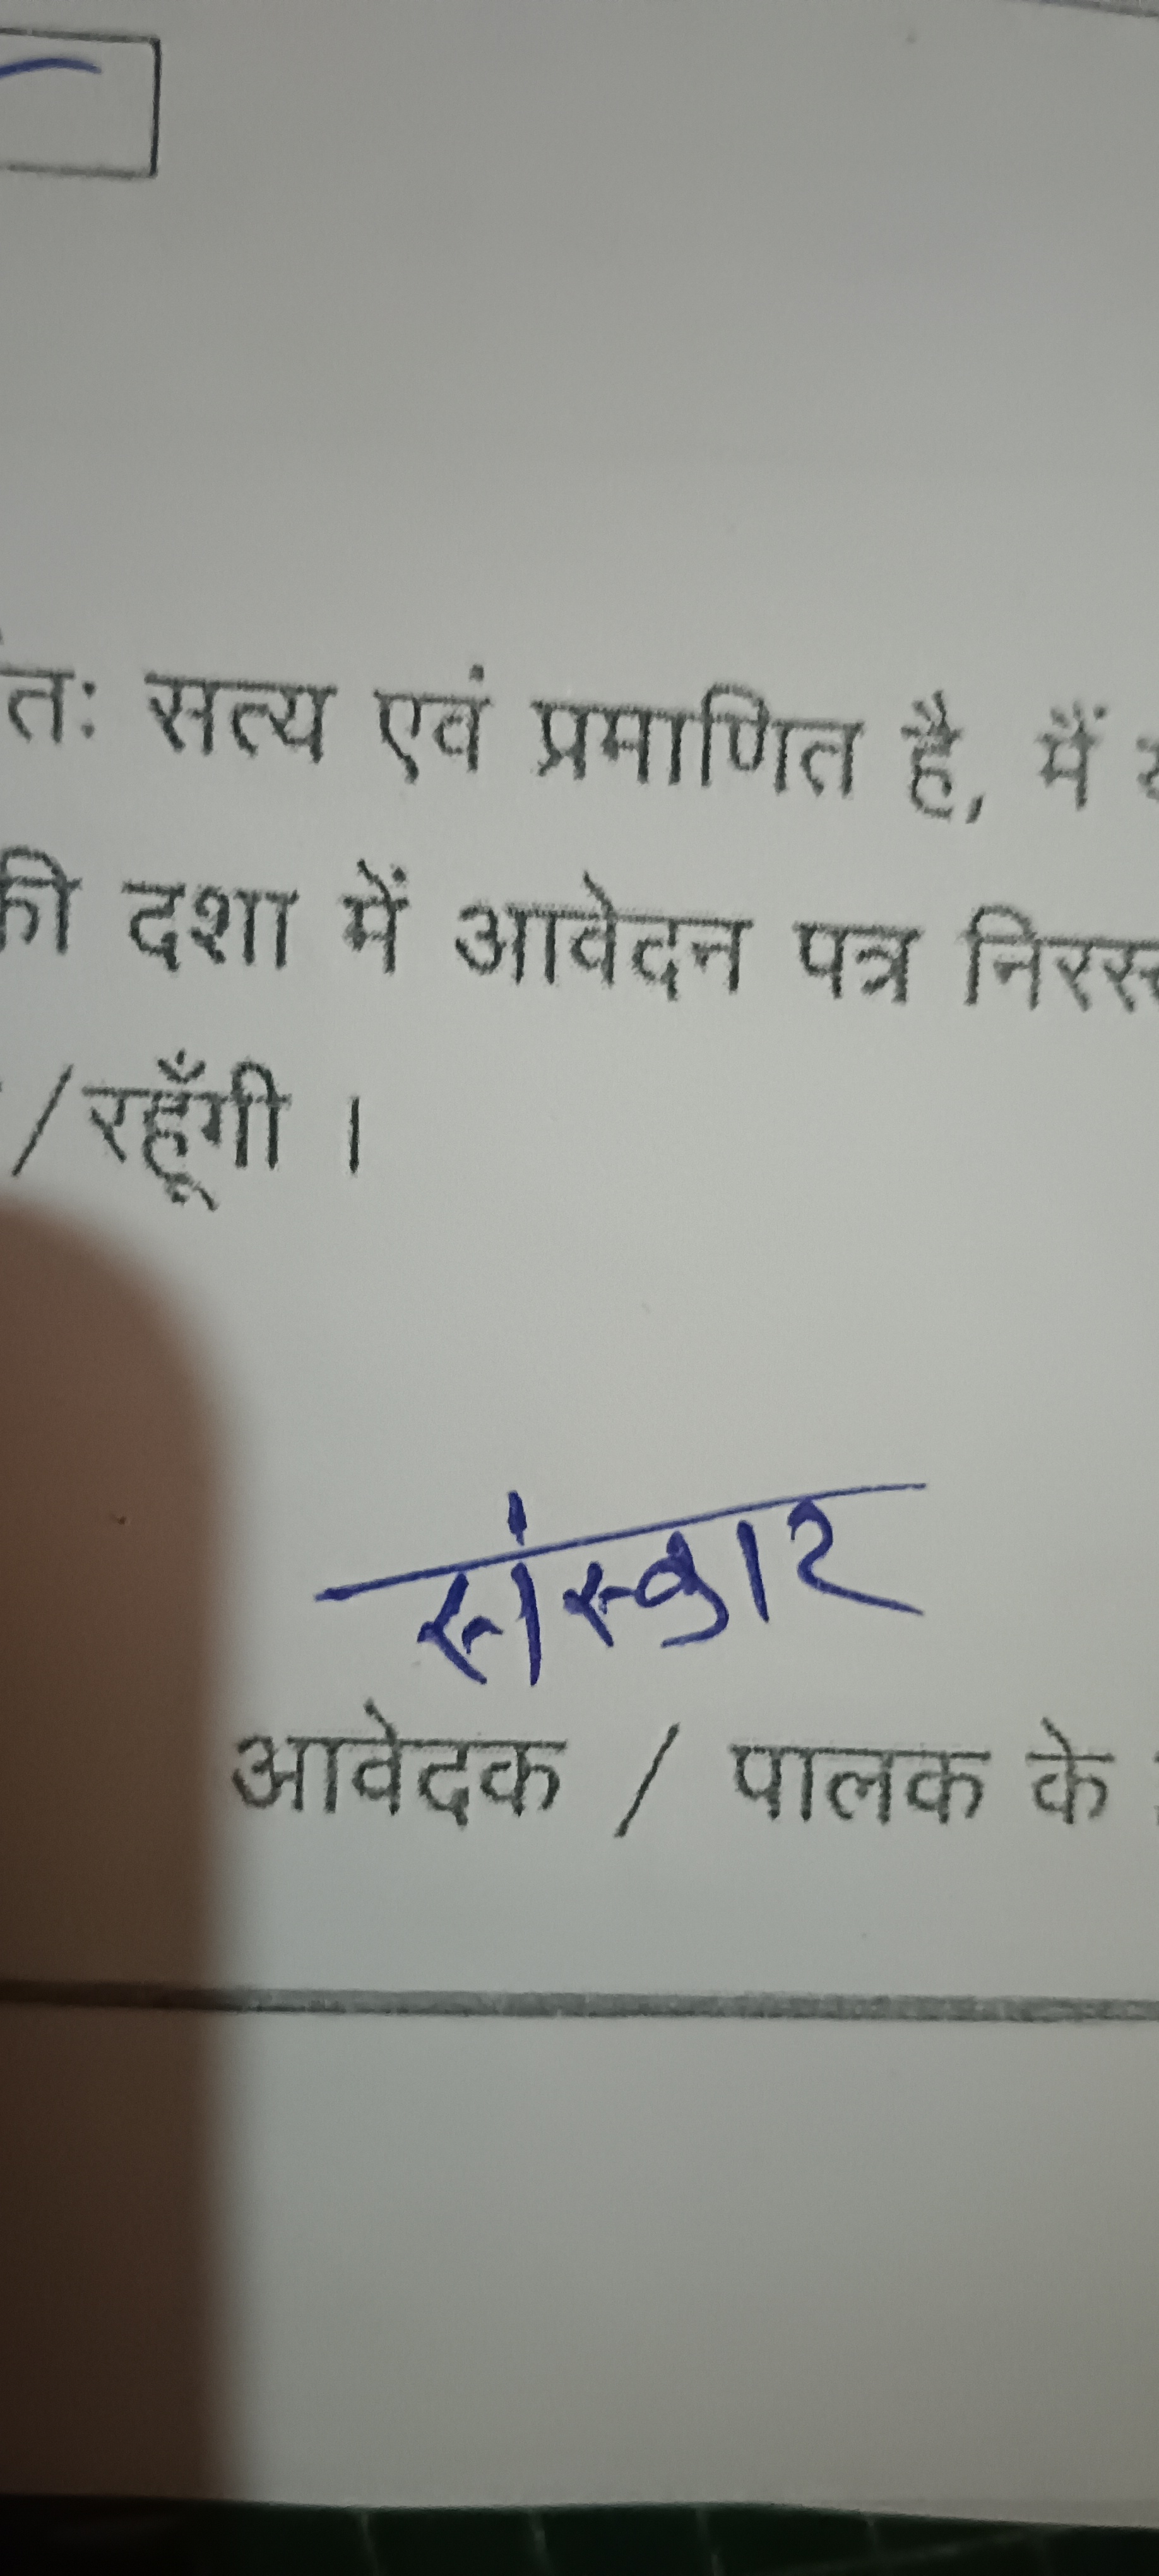 तः सत्य एवं प्रमाणित है, मैं
की दशा में आवेदन पत्र
/ रहूँगी ।
संस्कार
आवेदक / पालक के